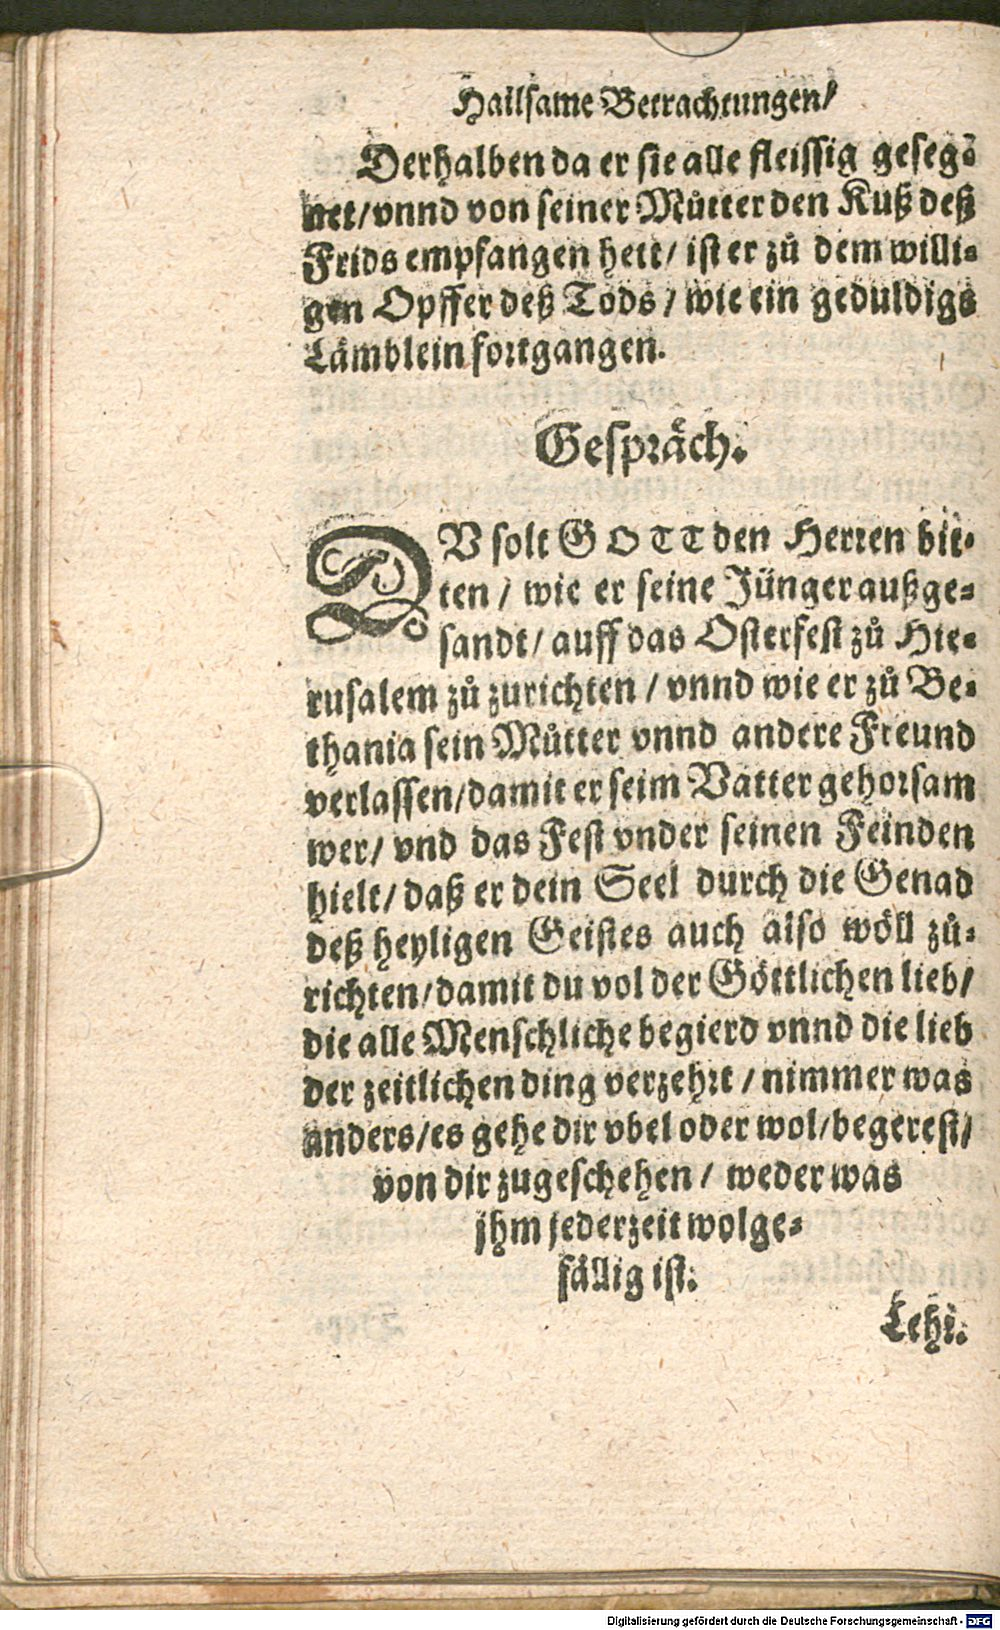 Hailsame Betrachtungen/
Derhalben da er sie alle fleissig geseg-
net/vnnd von seiner Můtter den Kuß deß
Frids empfangen hett/ ist er zů dem willi-
gen Opffer deß Tods/ wie ein geduldigs
Lämblein fortgangen.
Gespräch.
DV solt GOTT den Herren bit-
ten/ wie er seine Jünger außge-
sandt/ auff das Osterfest zů Hie-
rusalem zů zurichten/ vnnd wie er zů Be-
thania sein Můtter vnnd andere Freund
verlassen/damit er seim Vatter gehorsam
wer/ vnd das Fest vnder seinen Feinden
hielt/ daß er dein Seel durch die Genad
deß heyligen Geistes auch also wöll zů-
richten/damit du vol der Göttlichen lieb/
die alle Menschliche begierd vnnd die lieb
der zeitlichen ding verzehrt/ nimmer was
anders/es gehe dir vbel oder wol/begerest/
von dir zugeschehen/ weder was
jhm jederzeit wolge-
fällig ist.
Lehr.
Digitalisierung gefördert durch die Deutsche Forschungsgemeinschaft - DFG